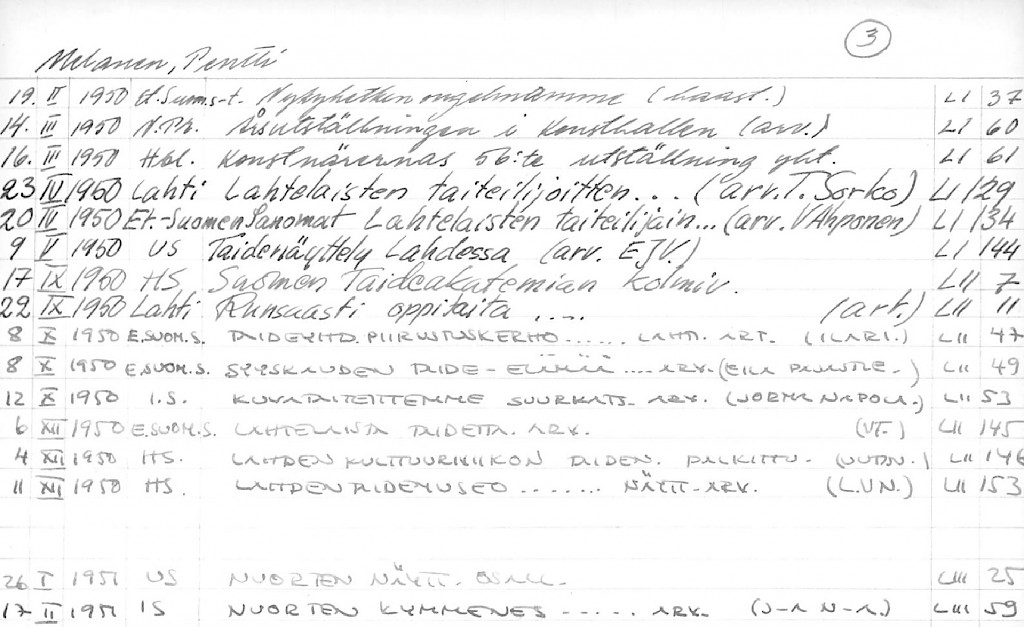 3
Melanen, Pentti
19. II 1950 Et.Suom.s-t. Nykyhetken ongelmamme (haast.) LI 37
14. III 1950 N.Pr. Årsutställningen i Konsthallen (arv.) LI 60
16. III 1950 Hbl. Konstnärernas 56:te utställning yht. LI 61
23 IV 1950 Lahti Lahtelaisten taiteilijoitten... (arv. T. Sorko) LI 129
20 IV 1950 Et-Suomen Sanomat Lahtelaisten taiteilijain... (arv. V Ahponen) LI 134
9 V 1950 US Taidenäyttely Lahdessa (arv. E.J.V.) LI 144
17 IX 1950 HS Suomen Taideakatemian kolmiv. LII 7
22 IX 1950 Lahti Runsaasti oppilaita .... (art.) LII 11
8 X 1950 E.SUOM.S. TAIDEYHD. PIIRUSTUSKERHO...... LAHTI. ART. (ILARI.) LII 47
8 X 1950 E.SUOM.S. SYYSKAUDEN TAIDE-ELÄMÄÄ .... ARV. (EILA LII 49
12 X 1950 I.S. KUVATAITEITTEMME SUURKATS. ARV. (JORMA NAPOLA.) LII 53
6 XII 1950 E.SUOM.S. LAHTELAISTA TAIDETTA. ARV. (VT.) LII 145
4 XII 1950 HS. LAHDEN KULTTUURIVIIKON TAIDEN. PALKITTU. (UUTIN.) LII 146
11 XII 1950 HS. LAHDEN TAIDEMUSEO ....... NÄYTT-ARV. (L.VN.) LII 153
26 I 1951 US NUORTEN NÄYTT. OSALL. LIII 25
17 II 1951 IS NUORTEN KYMMENES ..... ARV. (J-A N-A.) LIII 59